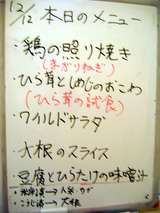 12/12 本日のメニュー
・鶏の照り焼き
(まびりねぎ)
・ひら茸としめじのおこわ
(ひら茸の試食)
・ワイルドサラダ
・大根のスライス
・豆腐とひらたけの味噌汁